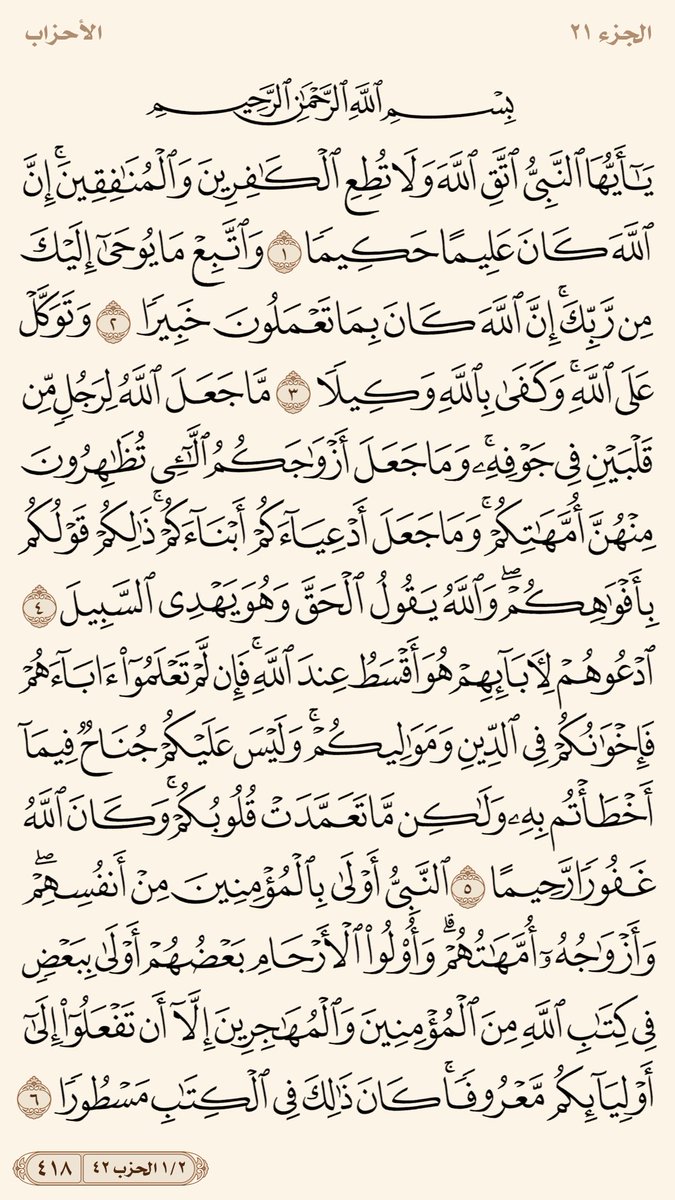 الجزء ٢١
الأحزاب
بِسْمِ ٱللَّهِ ٱلرَّحْمَٰنِ ٱلرَّحِيمِ
يَٰٓأَيُّهَا ٱلنَّبِيُّ ٱتَّقِ ٱللَّهَ وَلَا تُطِعِ ٱلْكَٰفِرِينَ وَٱلْمُنَٰفِقِينَۚ إِنَّ
ٱللَّهَ كَانَ عَلِيمًا حَكِيمًا ١ وَٱتَّبِعْ مَا يُوحَىٰٓ إِلَيْكَ
مِن رَّبِّكَۚ إِنَّ ٱللَّهَ كَانَ بِمَا تَعْمَلُونَ خَبِيرًا ٢ وَتَوَكَّلْ
عَلَى ٱللَّهِۚ وَكَفَىٰ بِٱللَّهِ وَكِيلًا ٣ مَّا جَعَلَ ٱللَّهُ لِرَجُلٍ مِّن
قَلْبَيْنِ فِي جَوْفِهِۦۚ وَمَا جَعَلَ أَزْوَٰجَكُمُ ٱلَّٰٓـِٔي تُظَٰهِرُونَ
مِنْهُنَّ أُمَّهَٰتِكُمْۚ وَمَا جَعَلَ أَدْعِيَآءَكُمْ أَبْنَآءَكُمْۚ ذَٰلِكُمْ قَوْلُكُم
بِأَفْوَٰهِكُمْۖ وَٱللَّهُ يَقُولُ ٱلْحَقَّ وَهُوَ يَهْدِي ٱلسَّبِيلَ ٤
ٱدْعُوهُمْ لِأٓبَآئِهِمْ هُوَ أَقْسَطُ عِندَ ٱللَّهِۚ فَإِن لَّمْ تَعْلَمُوٓا۟ ءَابَآءَهُمْ
فَإِخْوَٰنُكُمْ فِي ٱلدِّينِ وَمَوَٰلِيكُمْۚ وَلَيْسَ عَلَيْكُمْ جُنَاحٌ فِيمَآ
أَخْطَأْتُم بِهِۦ وَلَٰكِن مَّا تَعَمَّدَتْ قُلُوبُكُمْۚ وَكَانَ ٱللَّهُ
غَفُورًا رَّحِيمًا ٥ ٱلنَّبِيُّ أَوْلَىٰ بِٱلْمُؤْمِنِينَ مِنْ أَنفُسِهِمْۖ
وَأَزْوَٰجُهُۥٓ أُمَّهَٰتُهُمْۗ وَأُو۟لُوا۟ ٱلْأَرْحَامِ بَعْضُهُمْ أَوْلَىٰ بِبَعْضٍ
فِي كِتَٰبِ ٱللَّهِ مِنَ ٱلْمُؤْمِنِينَ وَٱلْمُهَٰجِرِينَ إِلَّآ أَن تَفْعَلُوٓا۟ إِلَىٰٓ
أَوْلِيَآئِكُم مَّعْرُوفًاۚ كَانَ ذَٰلِكَ فِي ٱلْكِتَٰبِ مَسْطُورًا ٦
١/٢ الحزب ٤٢
٤١٨